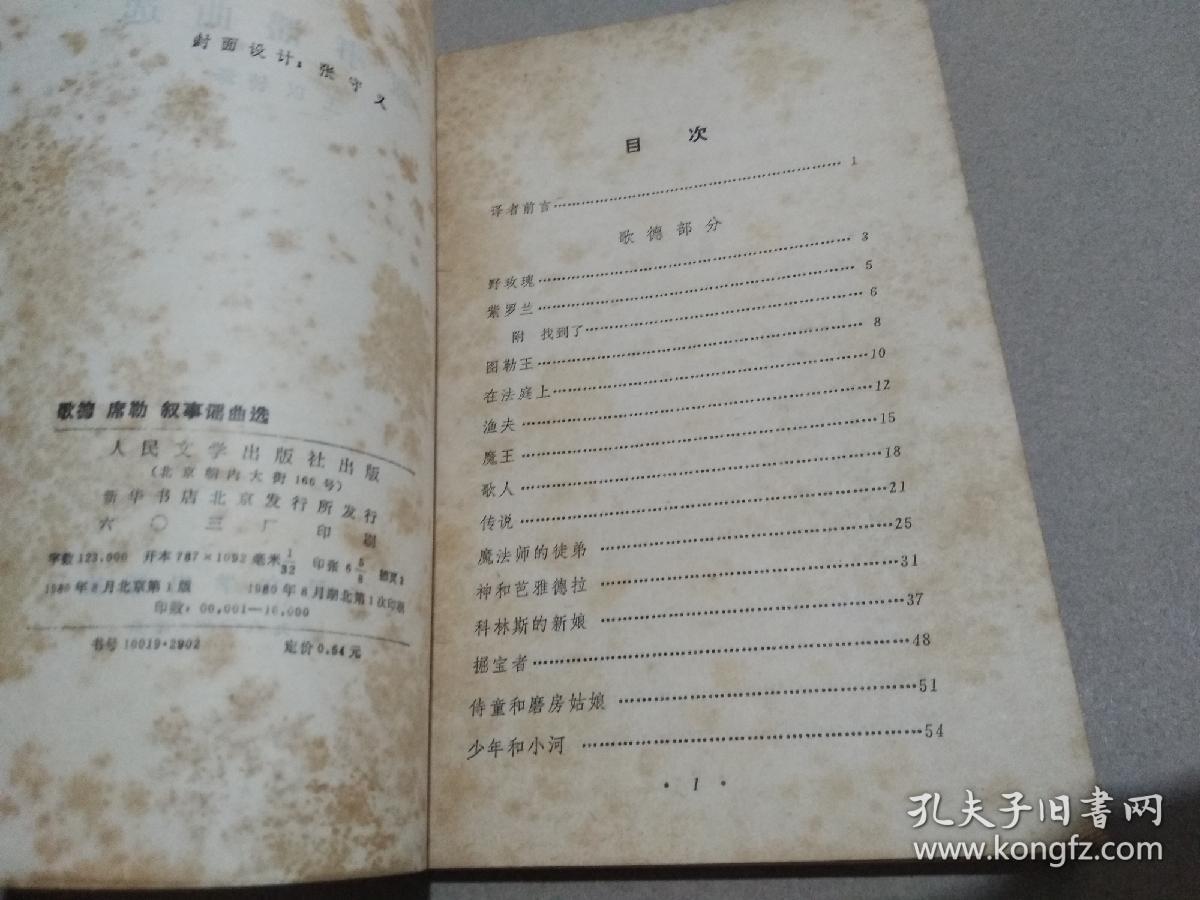 封面设计：张守义
歌德 席勒 叙事谣曲选
人民文学出版社出版
（北京朝内大街166号）
新华书店北京发行所发行
六〇三厂印刷
字数123,000 开本787×1092毫米1/32 印张6 5/8 插页2
1980年8月北京第1版 1980年8月湖北第1次印刷
印数：00,001—10,000
书号10019·2902 定价0.64元
目次
译者前言……1
歌德部分
野玫瑰……3
紫罗兰……5
附 找到了……6
图勒王……8
在法庭上……10
渔夫……12
魔王……15
歌人……18
传说……21
魔法师的徒弟……25
神和芭雅德拉……31
科林斯的新娘……37
掘宝者……48
侍童和磨房姑娘……51
少年和小河……54
·1·
孔夫子旧书网
www.kongfz.com